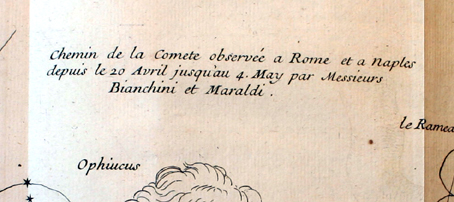 Chemin de la Comete observée a Rome et a Naples
depuis le 20 Avril jusqu'au 4. May par Messieurs
Bianchini et Maraldi.
le Ramea
Ophiucus